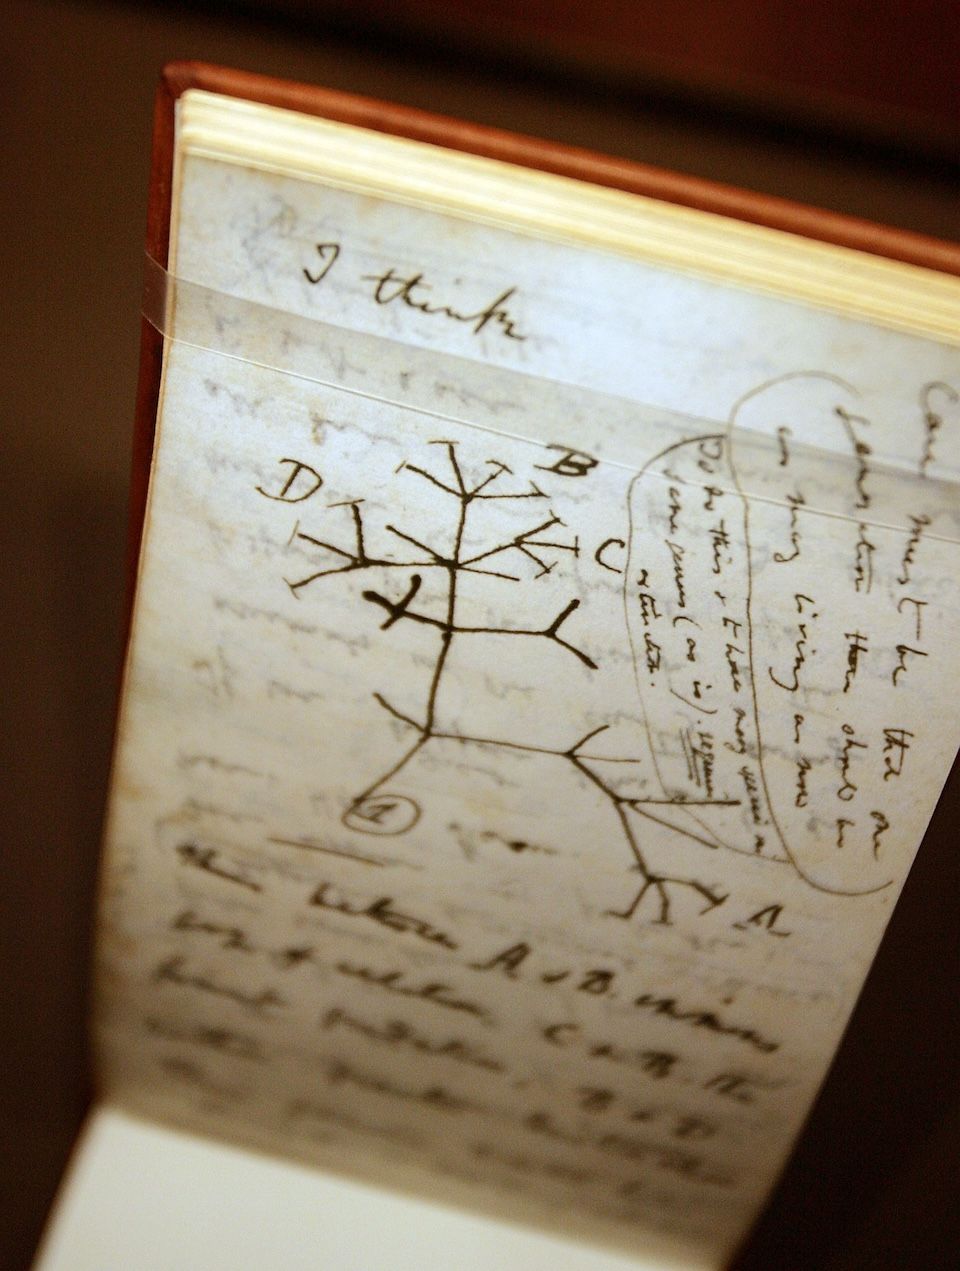 I think
D
B
C
A
1
Case must be that one
generation then should be
as many living as now
To do this & to have many species in
same genus (as is). requires
extinction.
Thus between A & B. immens
gap of relation. C & B. The
finest gradation, B & D
rather greater distinction